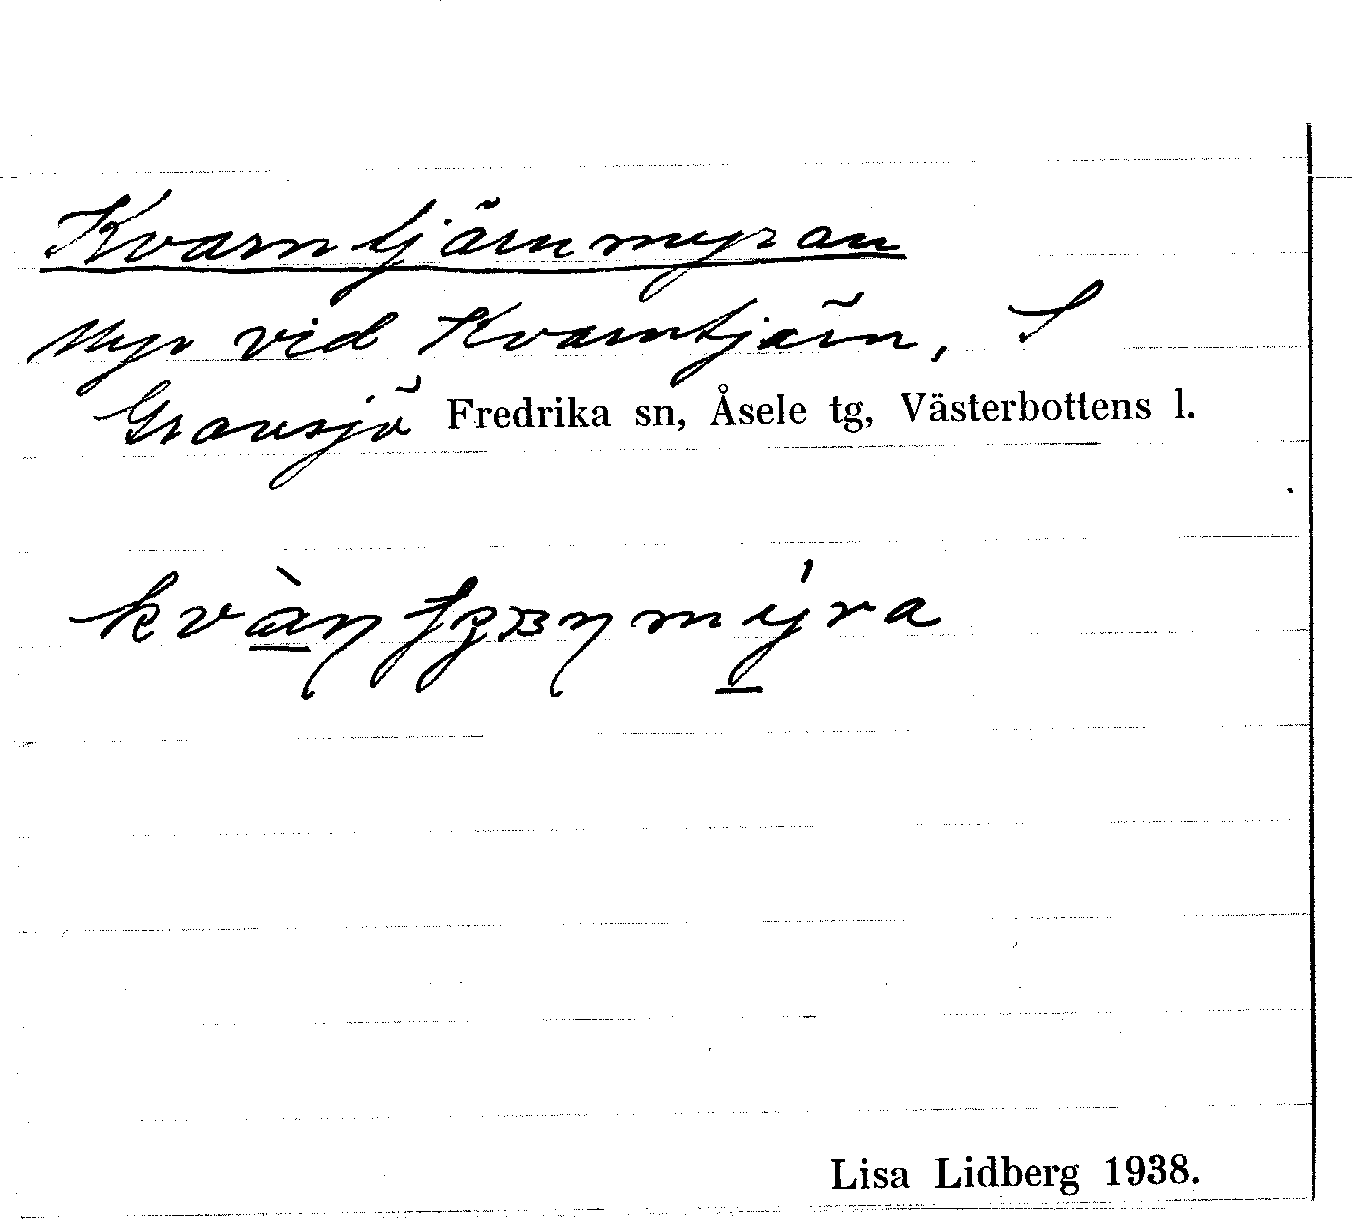 Kvarntjärnmyran
Myr vid Kvarntjärn, S
Gransjö Fredrika sn, Åsele tg, Västerbottens l.
Lisa Lidberg 1938.